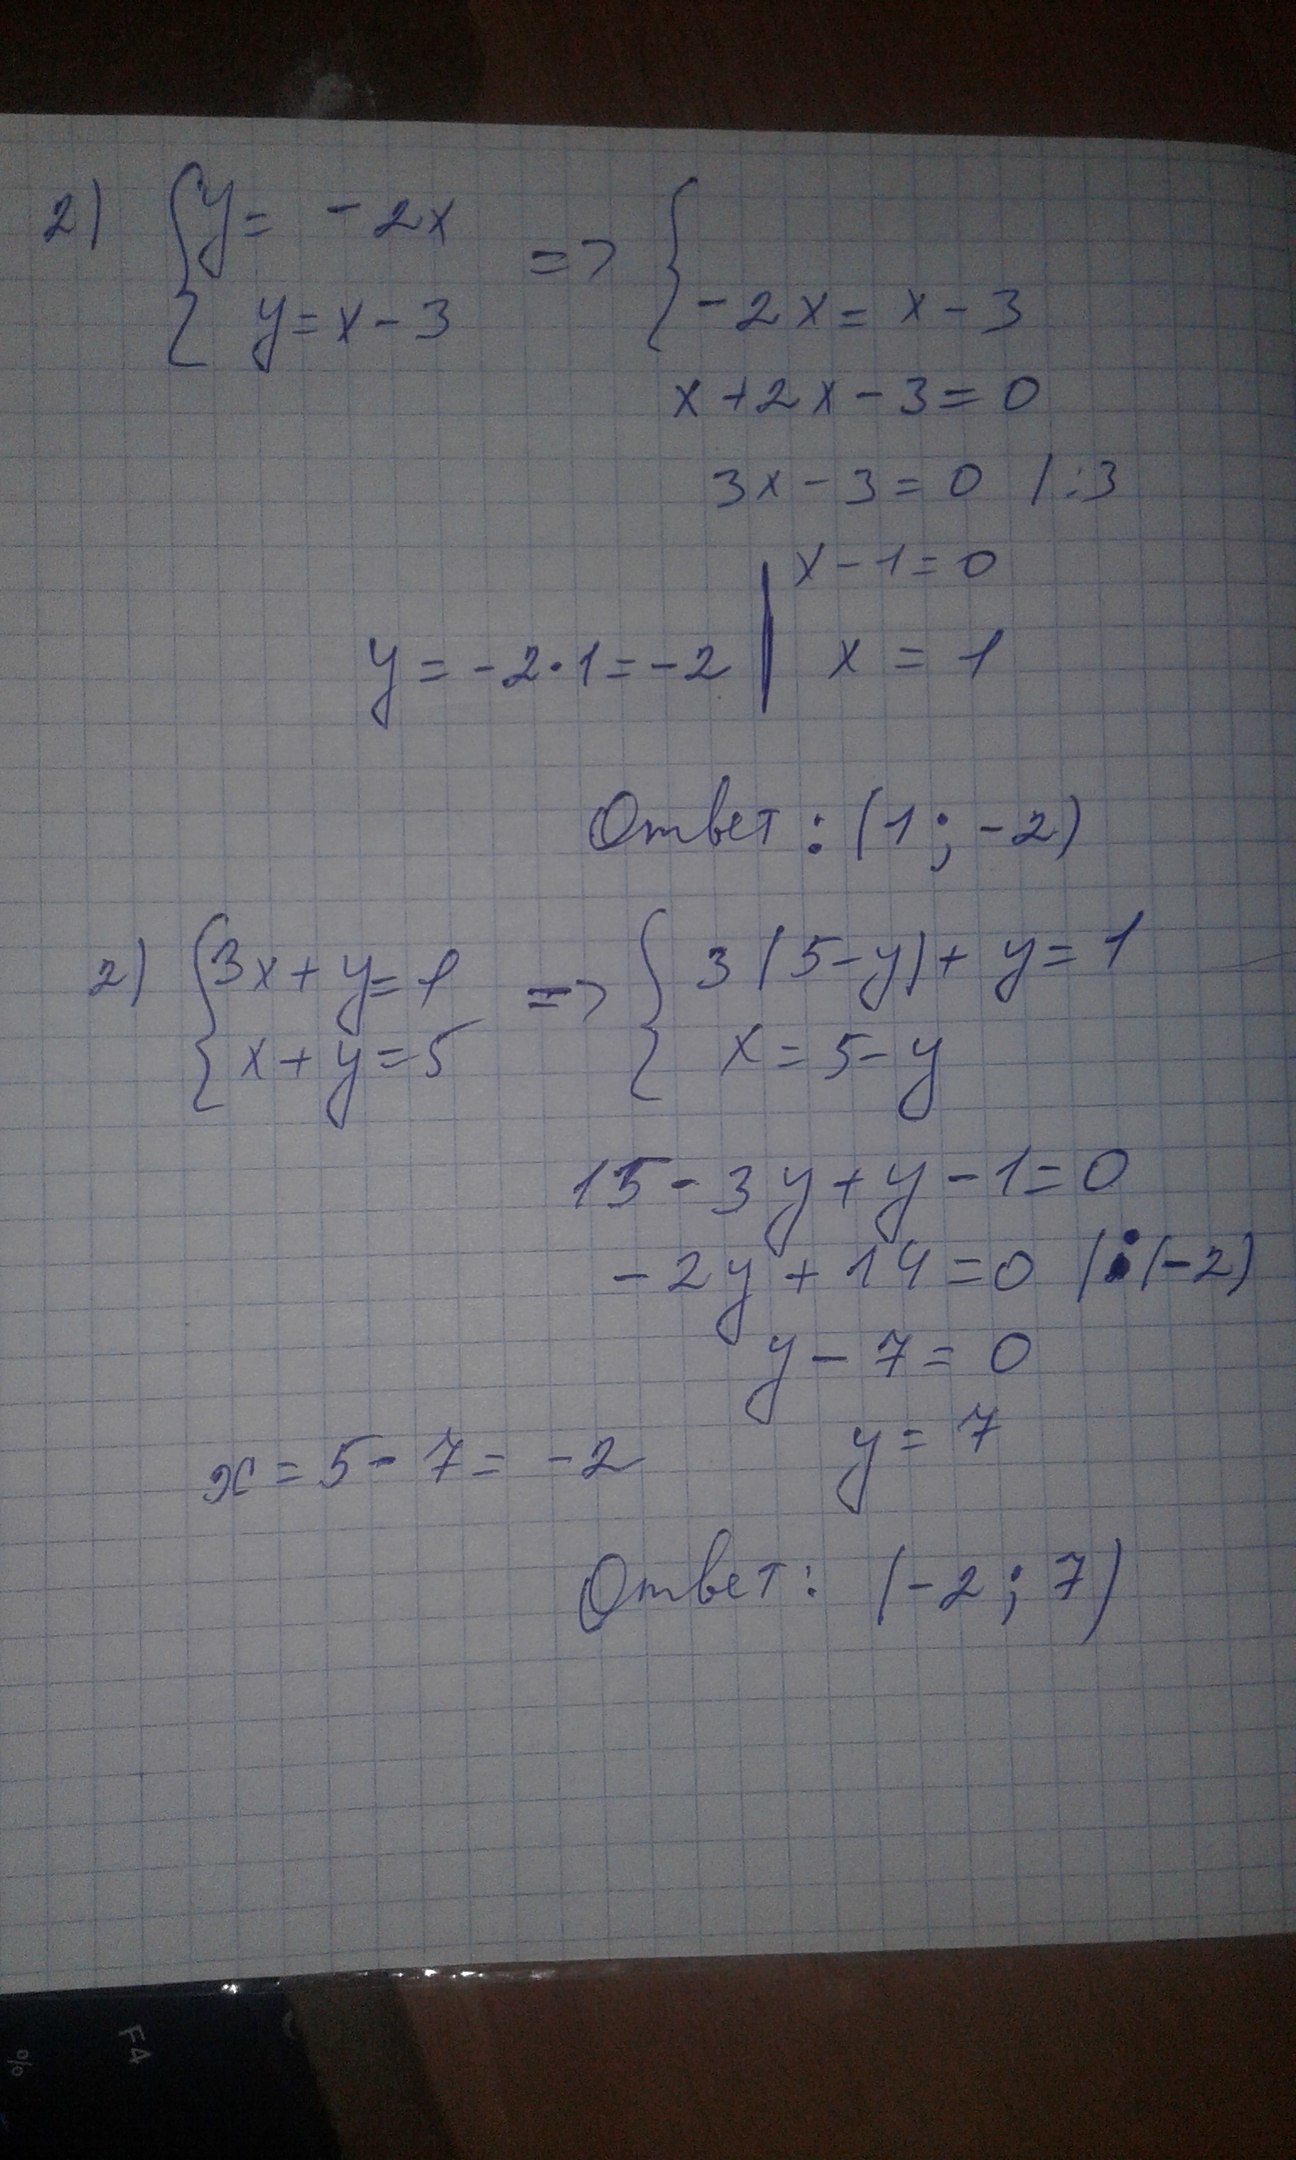 2) { y = -2x => {
y = x - 3 -2x = x - 3
x + 2x - 3 = 0
3x - 3 = 0 / :3
x - 1 = 0
y = -2 · 1 = -2 | x = 1
Ответ : (1 ; -2)
2) { 3x + y = 1 => { 3(5 - y) + y = 1
x + y = 5 x = 5 - y
15 - 3y + y - 1 = 0
-2y + 14 = 0 / : (-2)
y - 7 = 0
y = 7
x = 5 - 7 = -2
Ответ : (-2 ; 7)
F4
%